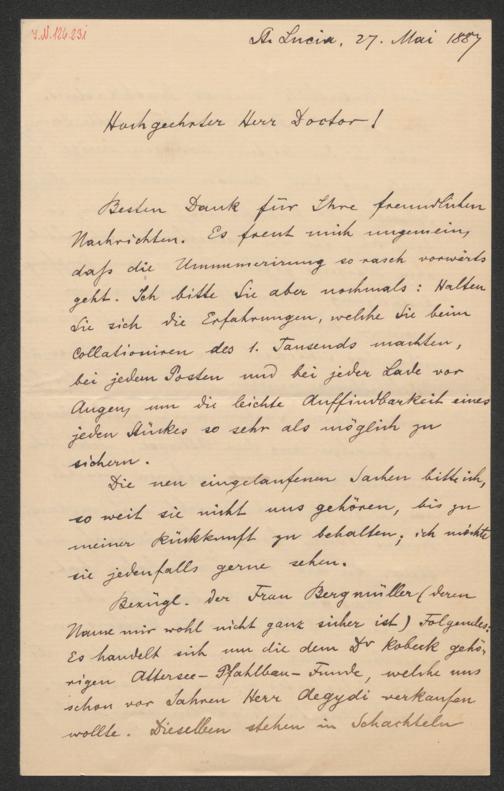 J.N. 126.231
St. Lucia, 27. Mai 1887
Hochgeehrter Herr Doctor!
Besten Dank für Ihre freundlichen
Nachrichten. Es freut mich ungemein,
daß die Ummumerirung so rasch vorwärts
geht. Ich bitte Sie aber nochmals: Halten
Sie sich die Erfahrungen, welche Sie beim
Collationiren des 1. Tausends machten,
bei jedem Posten und bei jeder Lade vor
Augen, um die leichte Auffindbarkeit eines
jeden Stückes so sehr als möglich zu
sichern.
Die neu eingelaufenen Sachen bitte ich,
so weit sie nicht uns gehören, bis zu
meiner Rückkunft zu behalten; ich möchte
sie jedenfalls gerne sehen.
Bezügl. der Frau Bergmüller (deren
Name mir wohl nicht ganz sicher ist) Folgendes:
Es handelt sich um die dem Dr Kobeck gehö-
rigen Attersee-Pfahlbau-Funde, welche uns
schon vor Jahren Herr Aegydi verkaufen
wollte. Dieselben stehen in Schachteln